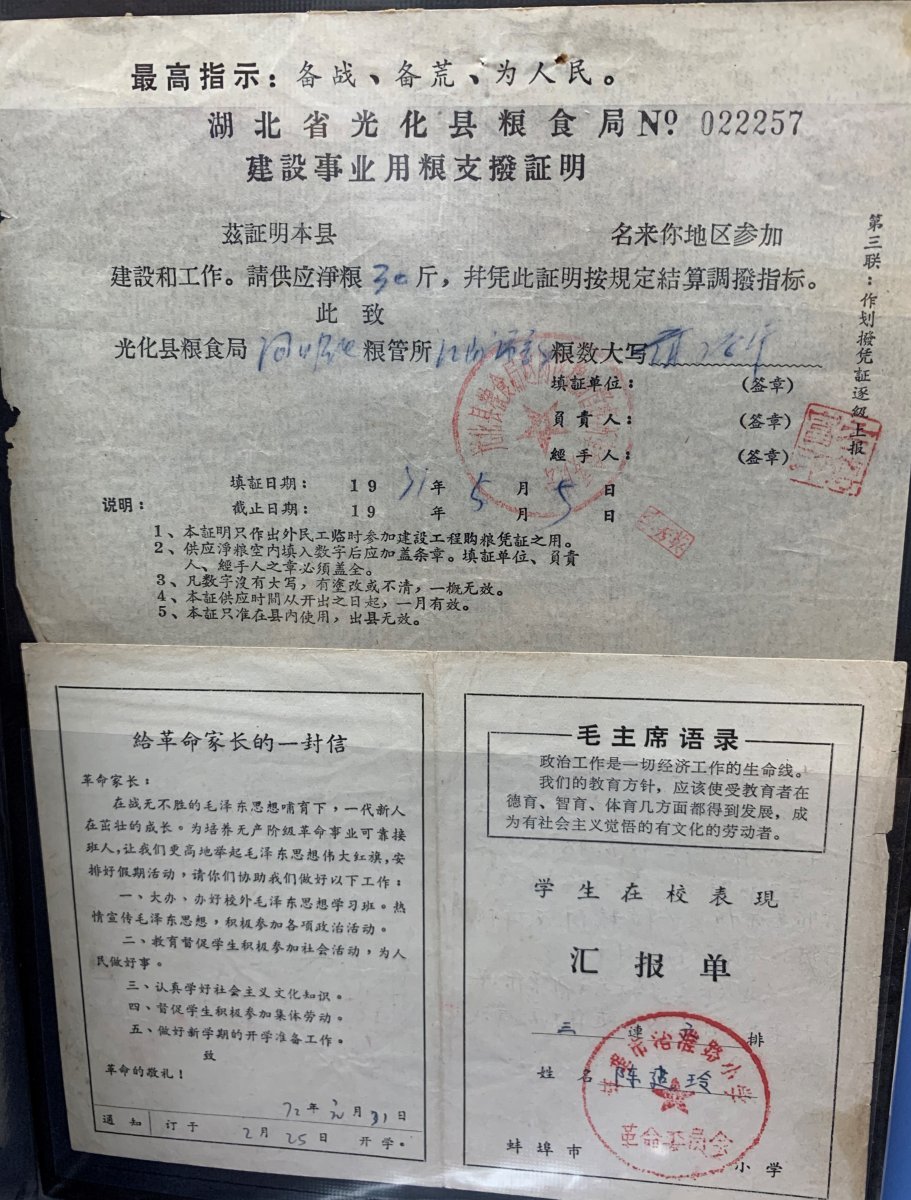 最高指示：备战、备荒、为人民。
湖北省光化县粮食局 № 022257
建設事业用粮支撥証明
茲証明本县 名来你地区参加
建設和工作。請供应淨粮30斤，幷凭此証明按規定結算調撥指标。
此致
光化县粮食局 粮管所 粮数大写
填証单位： (签章)
負責人： (签章)
經手人： (签章)
填証日期： 19 年 5 月 5 日
截止日期： 19 年 月 日
说明：
1、本証明只作出外民工临时参加建設工程购粮凭証之用。
2、供应淨粮室内填入数字后应加盖条章。填証单位、負責
人、經手人之章必须盖全。
3、凡数字沒有大写，有塗改或不清，一概无效。
4、本証供应时間从开出之日起，一月有效。
5、本証只准在县内使用，出县无效。
第三联：作划撥凭証逐級上报
给革命家长的一封信
革命家长：
在战无不胜的毛泽东思想哺育下，一代新人
在茁壮的成长。为培养无产阶级革命事业可靠接
班人，让我们更高地举起毛泽东思想伟大红旗，安
排好假期活动，请你们协助我们做好以下工作：
一、大办、办好校外毛泽东思想学习班。热
情宣传毛泽东思想，积极参加各项政治活动。
二、教育督促学生积极参加社会活动，为人
民做好事。
三、认真学好社会主义文化知识。
四、督促学生积极参加集体劳动。
五、做好新学期的开学准备工作。
致
革命的敬礼！
72年元月31日
通知 订于 2月25日 开学。
毛主席语录
政治工作是一切经济工作的生命线。
我们的教育方针，应该使受教育者在
德育、智育、体育几方面都得到发展，成
为有社会主义觉悟的有文化的劳动者。
学生在校表现
汇报单
三 連 排
姓名 陈 玲
蚌埠市 小学
蚌埠市治淮路小学
革命委员会